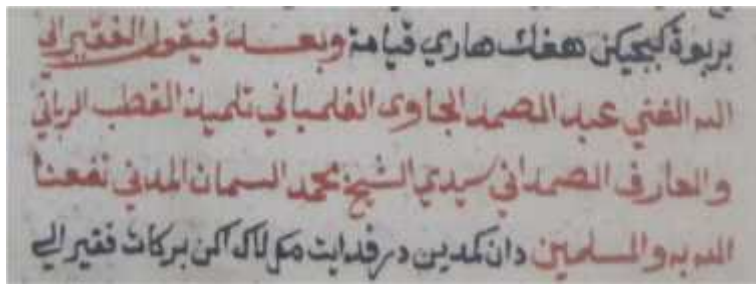 بربوة كبجيكن هڠك هاري قيامة وبعد فيقول الفقير الى
الله الغني عبد الصمد الجاوي الفلمباني تلميذ القطب الرباني
والعارف الصمداني سيدي الشيخ محمد السمان المدني نفعنا
الله به والمسلمين دان كمدين درفدايت مك لاڬ اكن بركات فقير الى